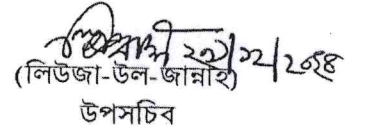 ২২/১২/২০২৪
(লিউজা-উল-জান্নাহ)
উপসচিব